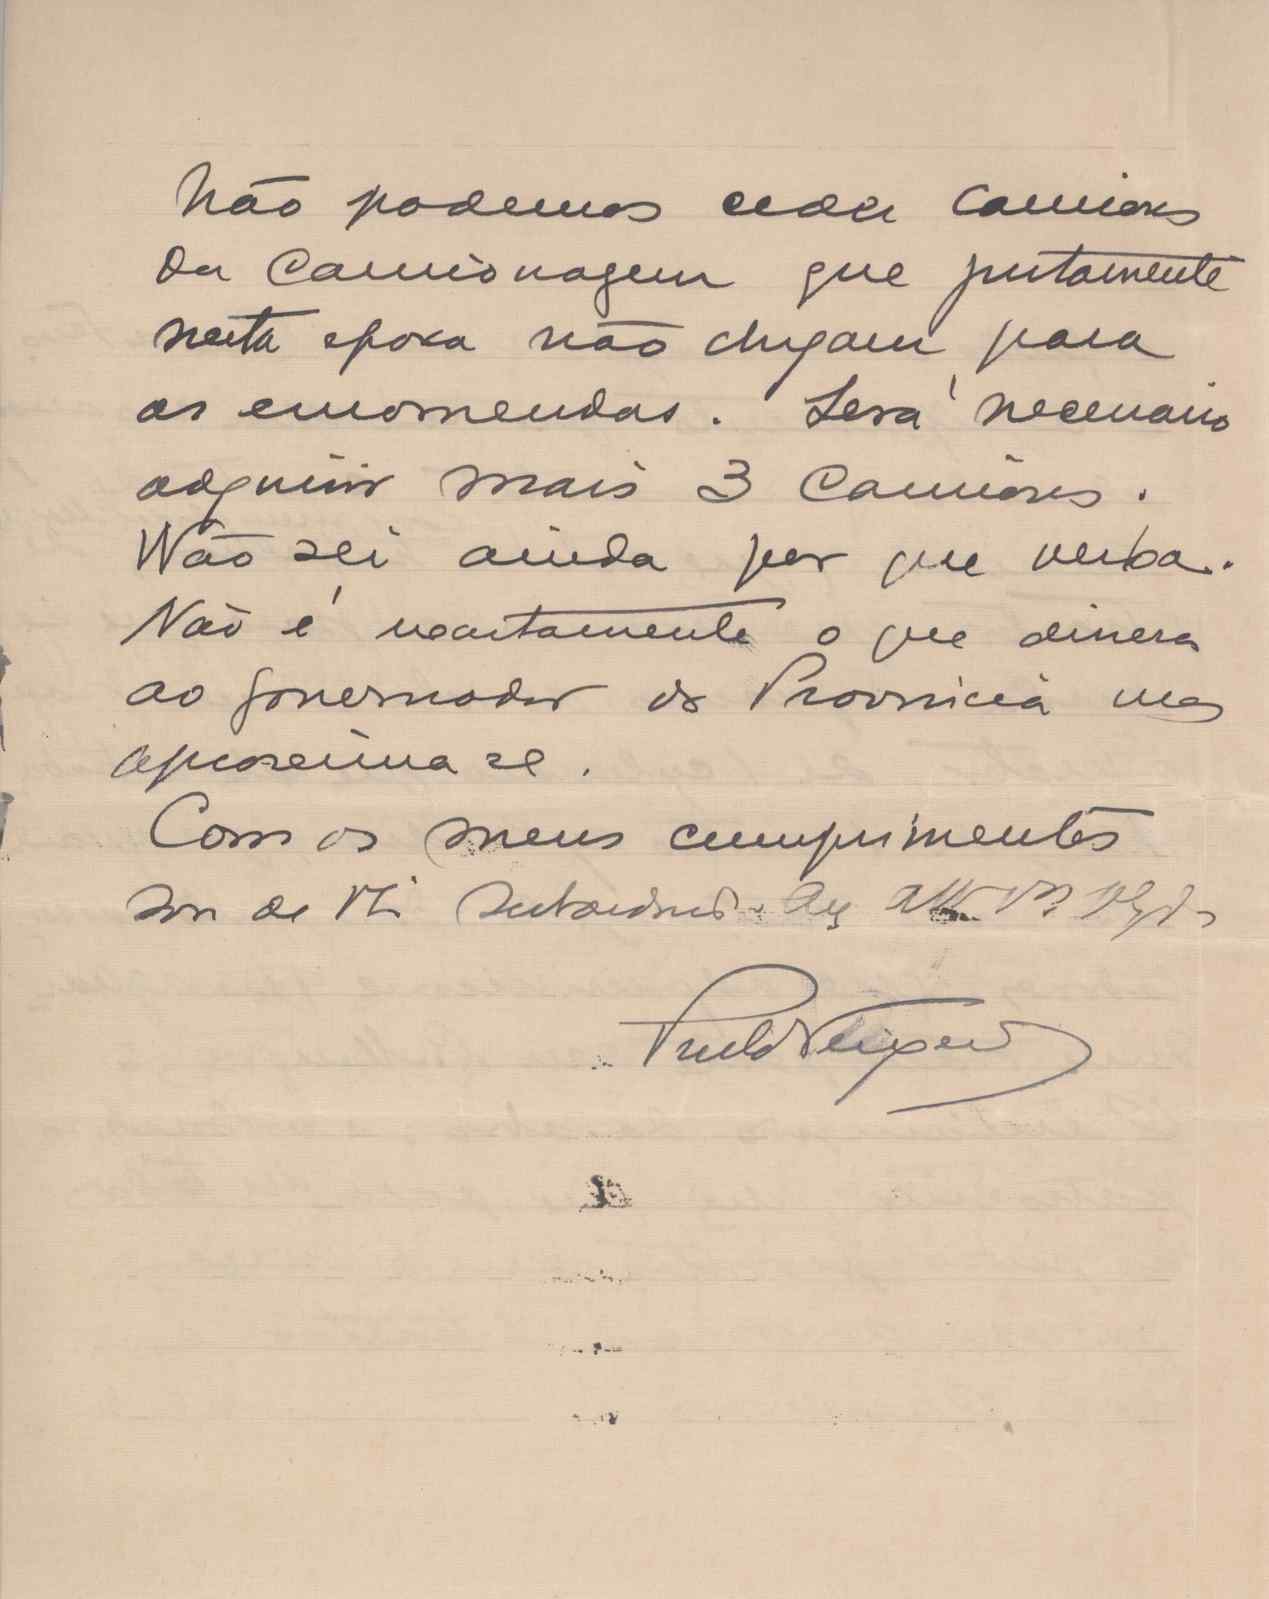 Não podemos ceder camiões
da Camionagem que justamente
nesta epoca não chegam para
as encomendas. Será necessario
adquirir mais 3 Camiões.
Não sei ainda por que verba.
Não é exactamente o que dissera
ao governador da Provincia mas
aproxima se.
Com os meus cumprimentos
sou de